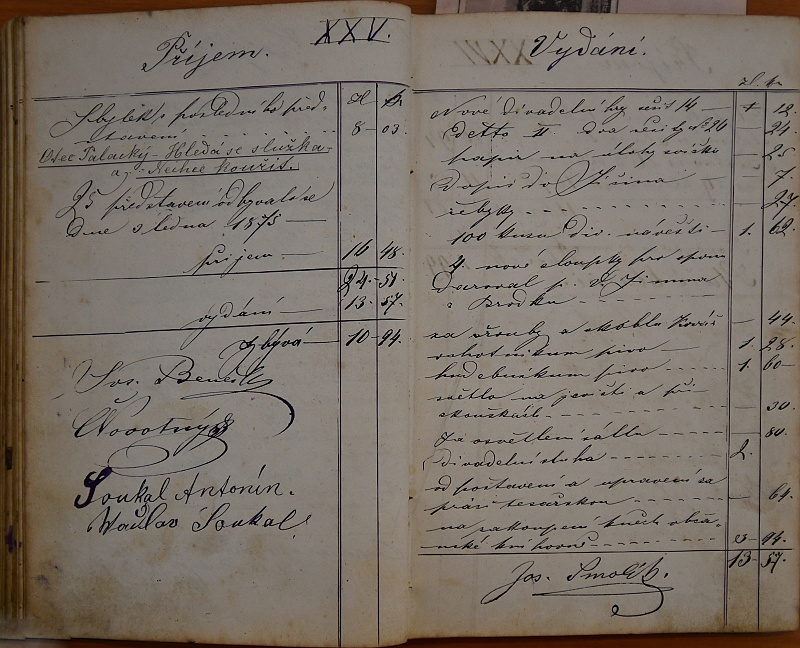 XXV.
Příjem.
zl. kr.
Zbytek s posledního před-
stavení 8 - 03.
Otec Palacký - Hledá se služka -
a, Nechce kouřit.
25 představení odbývalo se
dne ledna 1875 —
příjem — 16 48.
24 - 51.
vydání — 13 - 57.
zbývá — 10 - 94.
Jos. Beneš
Novotný
Soukal Antonín.
Wáclav Soukal
Vydání.
zl. kr.
Nové divadelní hry sešit 14 — + 12.
detto II. dva sešity 20 — 24.
papír na úlohy — 25
dopis do Jičína — 7.
27.
100 kusů div. návěští — 1. 62.
4. nové sloupky pro oponu
daroval p. V. Jirnma
z Brodku
za šrouby a skoble Kovář — 44.
robotníkum pivo — 1. 28.
hudebníkum pivo — 1. 60 —
světlo na jevišti a při
skouškách — 30.
Za osvětlení sálu — 80.
divadelní sluha — 2.
od postavení a upravení za
práci tesařskou — 64.
na zakoupení knih občan-
ské knihovně 3 - 94.
13 - 57.
Jos. Smolík.